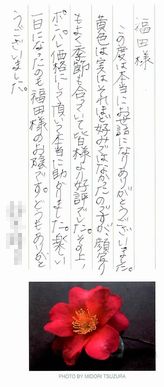 福田様
この度は本当にお世話になりありがとうございました。
黄色は実はそれほど好みではなかったのですが、顔写り
もよく季節も合っていて皆様より好評でした。その上、
ボンバレ価格にして頂いて本当に助かりました。楽しい
一日になったのも福田様のお陰です。どうもありがと
うございました。
PHOTO BY MIDORI TSUZURA